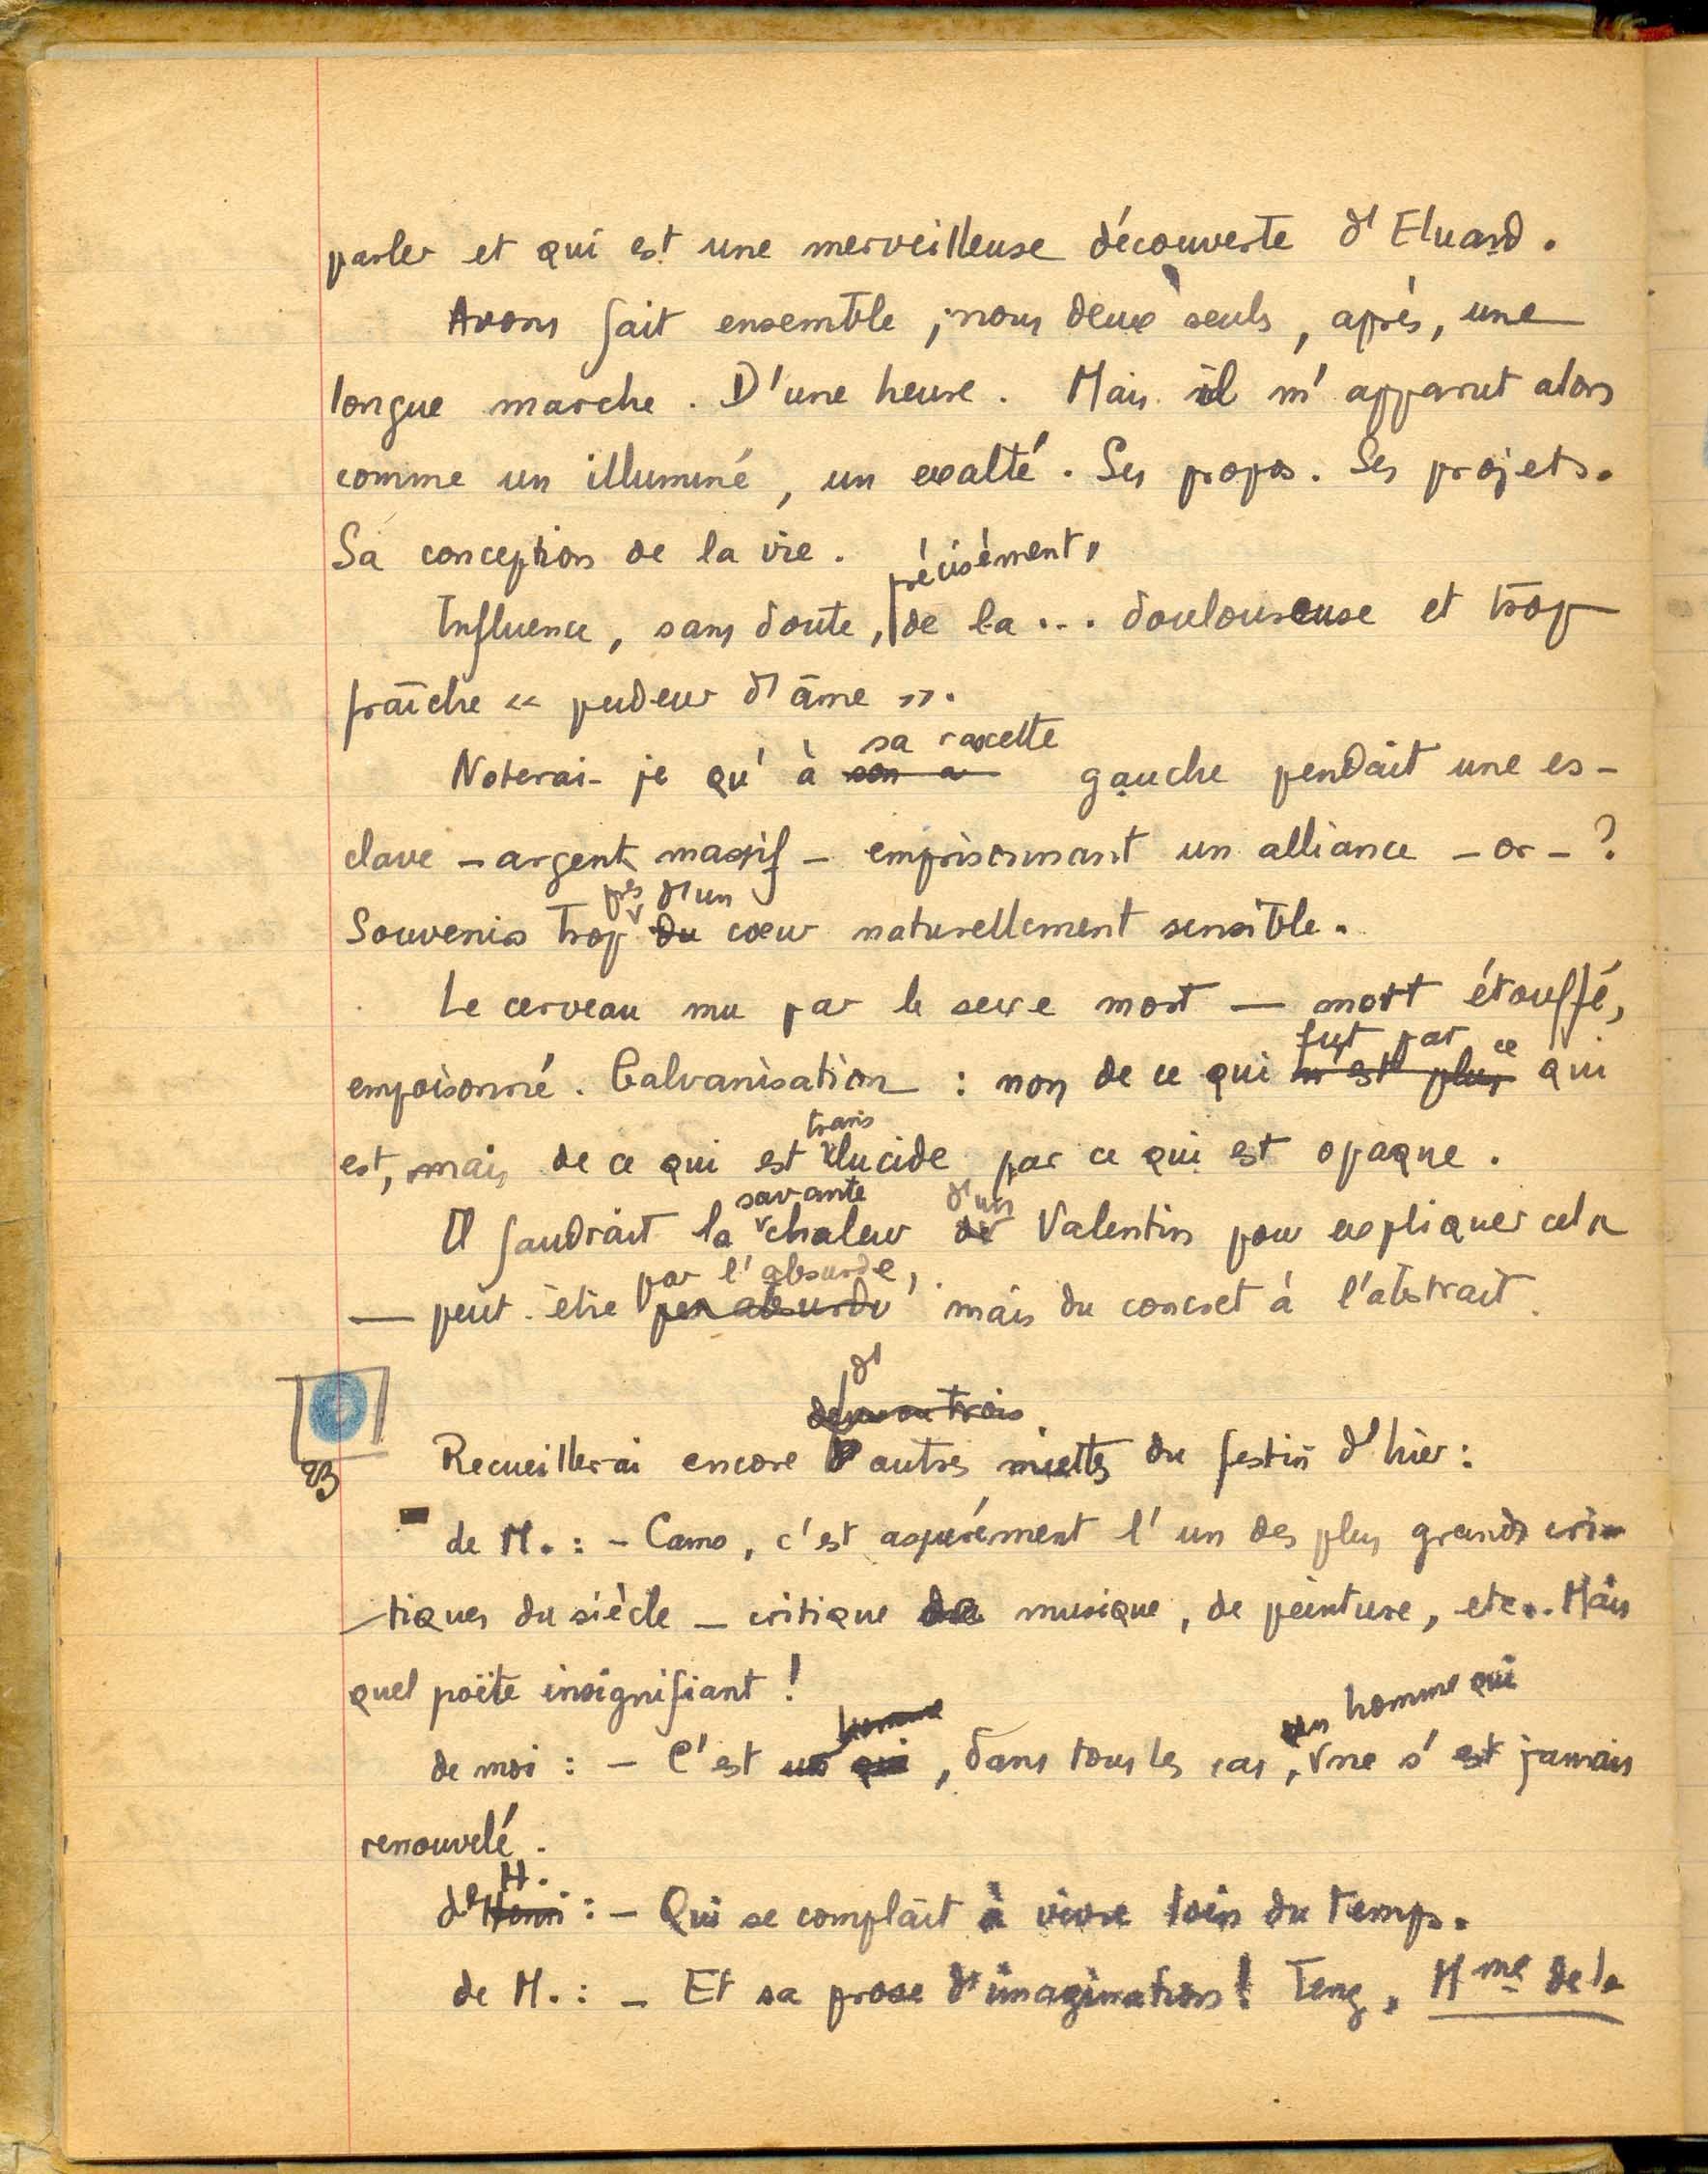 parler et qui est une merveilleuse découverte d'Eluard.
Avons fait ensemble, nous deux seuls, après, une
longue marche. D'une heure. Mais il m'apparut alors
comme un illuminé, un exalté. Ses propos. Ses projets.
Sa conception de la vie.
précisément,
Influence, sans doute, de la ... douloureuse et trop
fraîche « pudeur d'âme ».
sa raxette
Noterai-je qu'à son a gauche pendait une es-
clave - argent massif - emprisonnant un alliance - or - ?
près d'un
Souvenirs trop du cœur naturellement sensible.
Le cerveau mu par le sexe mort — mort étouffé,
fut par ce
empoisonné. Galvanisation : non de ce qui n'est plus qui
trans
est, mais de ce qui est lucide par ce qui est opaque.
savante d'un
Il faudrait la chaleur de Valentin pour expliquer cela
par l'absurde,
— peut-être per absurdo mais du concret à l'abstrait.
d'
deux ou trois
Recueillerai encore autres miettes du festin d'hier :
de M. : - Camo, c'est assurément l'un des plus grands cri-
tiques du siècle - critique de musique, de peinture, etc.. Mais
quel poëte insignifiant !
homme un homme qui
de moi : - C'est un qui, dans tous les cas, ne s'est jamais
renouvelé.
H.
de Henri : - Qui se complaît à vivre loin du temps.
de M. : - Et sa prose d'imagination ! Tenez, Mme de la